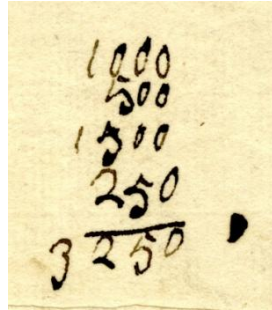 1000
500
1500
250
3250